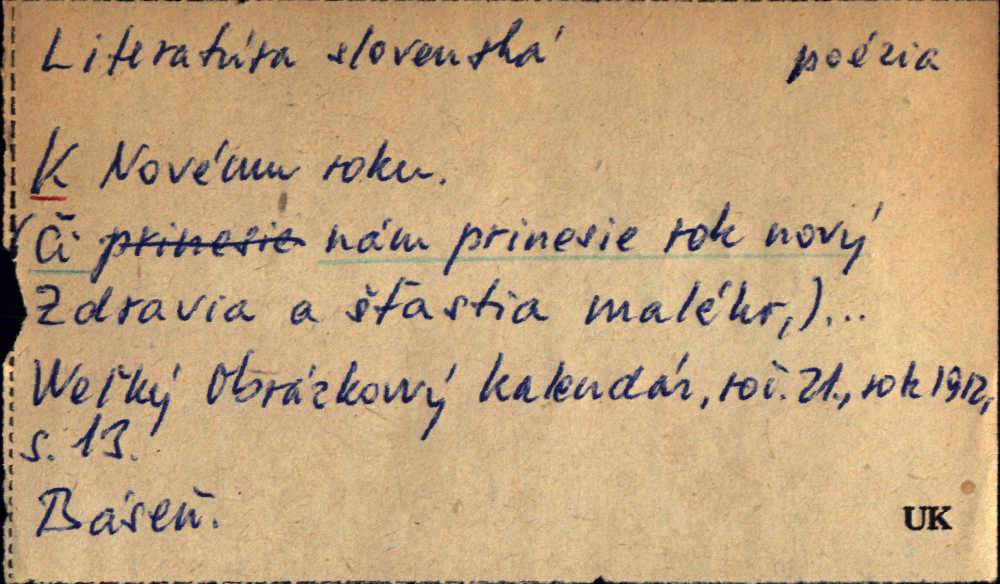 Literatúra slovenská poézia
K Novému roku.
(Či prinesie nám prinesie rok nový
Zdravia a šťastia malého,)...
Weľký Obrázkový kalendár, roč. 21., rok 1912,
s. 13.
Báseň.
UK